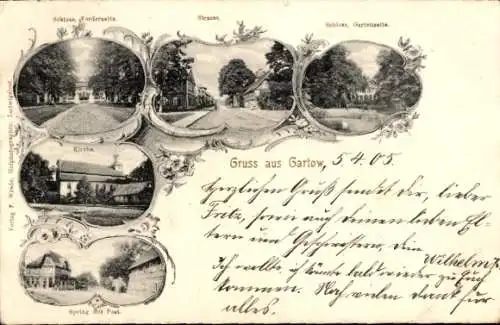 Schloss, Vorderseite.
Strasse.
Schloss, Gartenseite.
Kirche.
Gruss aus Gartow, 5.4.05
Herzlichen Gruß sendet Dir, lieber
Fritz, sowie auch deinen lieben El-
tern und Geschwistern, Dein
Wilhelm
Ich wollte, ich könnte bald wieder zu Euch
kommen. Noch vielen Dank für
alles.
Spring mit Post.
Verlag F. Hofphotographie, Ludwigslust.